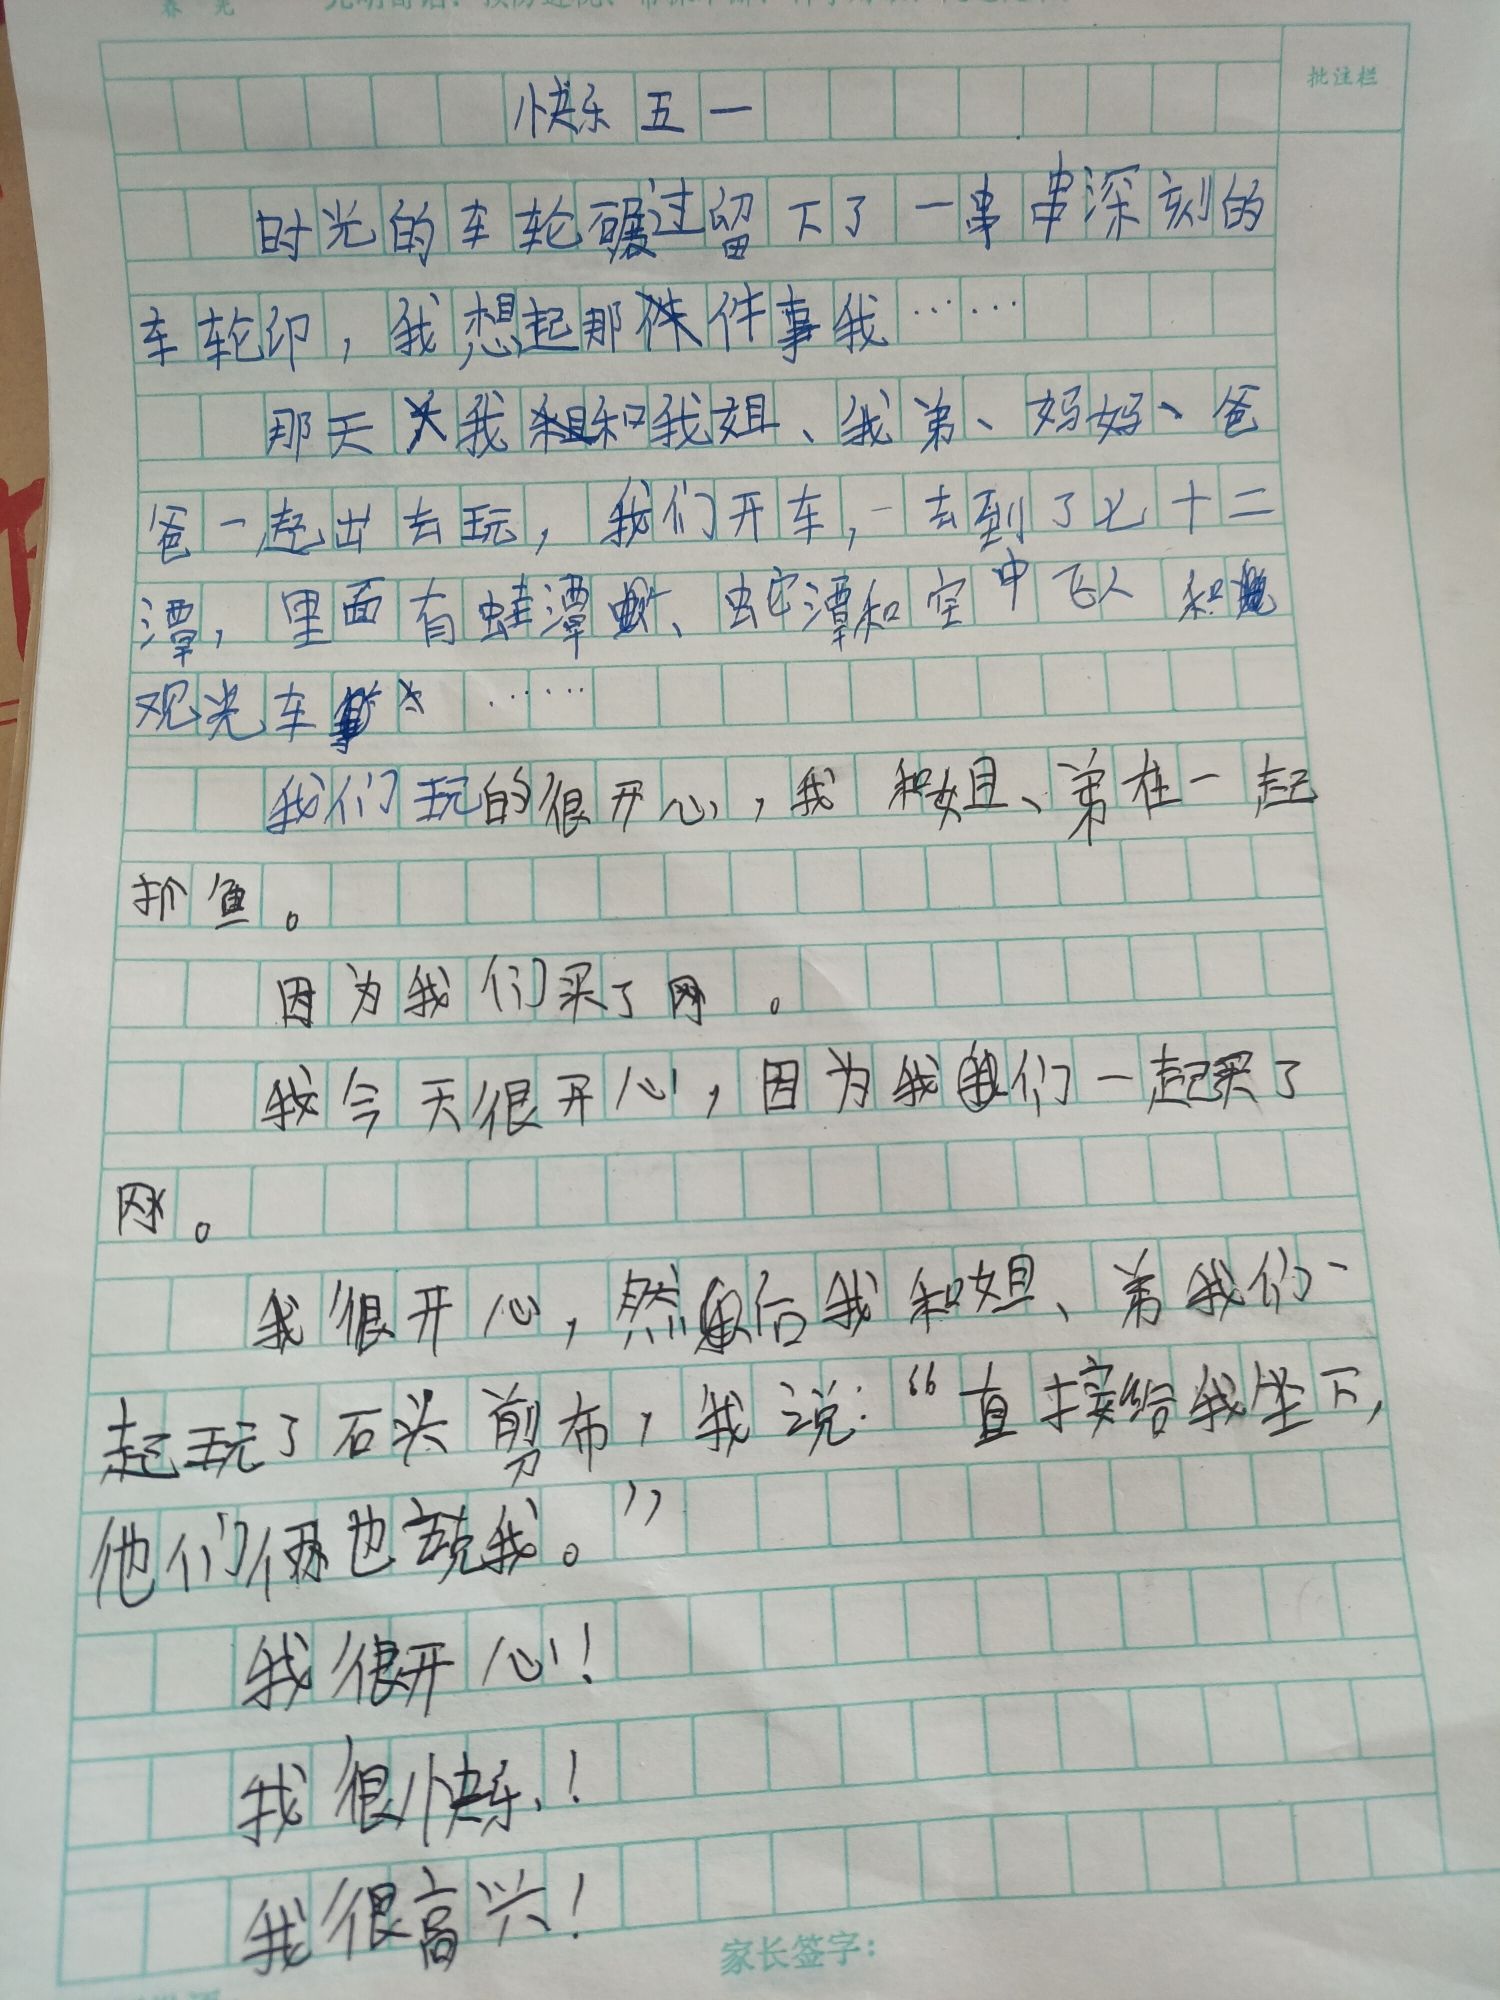 快乐五一
批注栏
时光的车轮碾过留下了一串串深刻的
车轮印，我想起那件事我……
那天我和我姐、我弟、妈妈、爸
爸一起出去玩，我们开车，去到了七十二
潭，里面有蛙潭、蛇潭和空中飞人和
观光车……
我们玩的很开心，我和姐、弟在一起
抓鱼。
因为我们买了网。
我今天很开心，因为我们一起买了
网。
我很开心，然后我和姐、弟我们一
起玩了石头剪布，我说：“直接给我坐下，
他们俩也说我。”
我很开心！
我很快乐！
我很高兴！
家长签字：